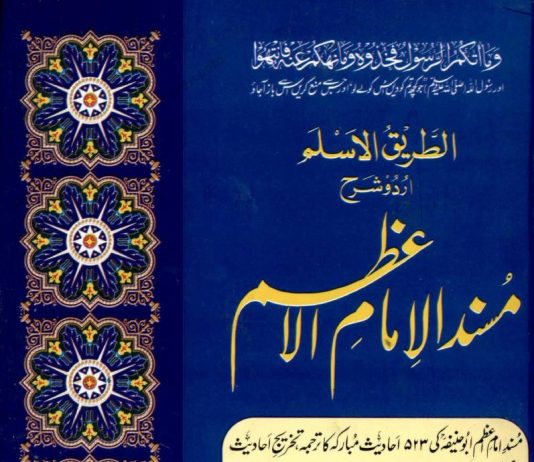 وَمَا اٰتٰىكُمُ الرَّسُوْلُ فَخُذُوْهُ وَمَا نَهٰىكُمْ عَنْهُ فَانْتَهُوْا
اور رسول اللہ (صلی اللہ علیہ وسلم) جو کچھ تم کو دیں اس کو لے لو اور جس سے منع کریں اس سے باز آجاؤ
الطَّرِيْقُ الْاَسْلَم
اردو شرح
مُسند الإمامِ الاعظم
مُسندِ امامِ اعظم ابو حنیفہؒ کی ۵۲۳ احادیث مبارکہ کا ترجمہ، تخریج احادیث